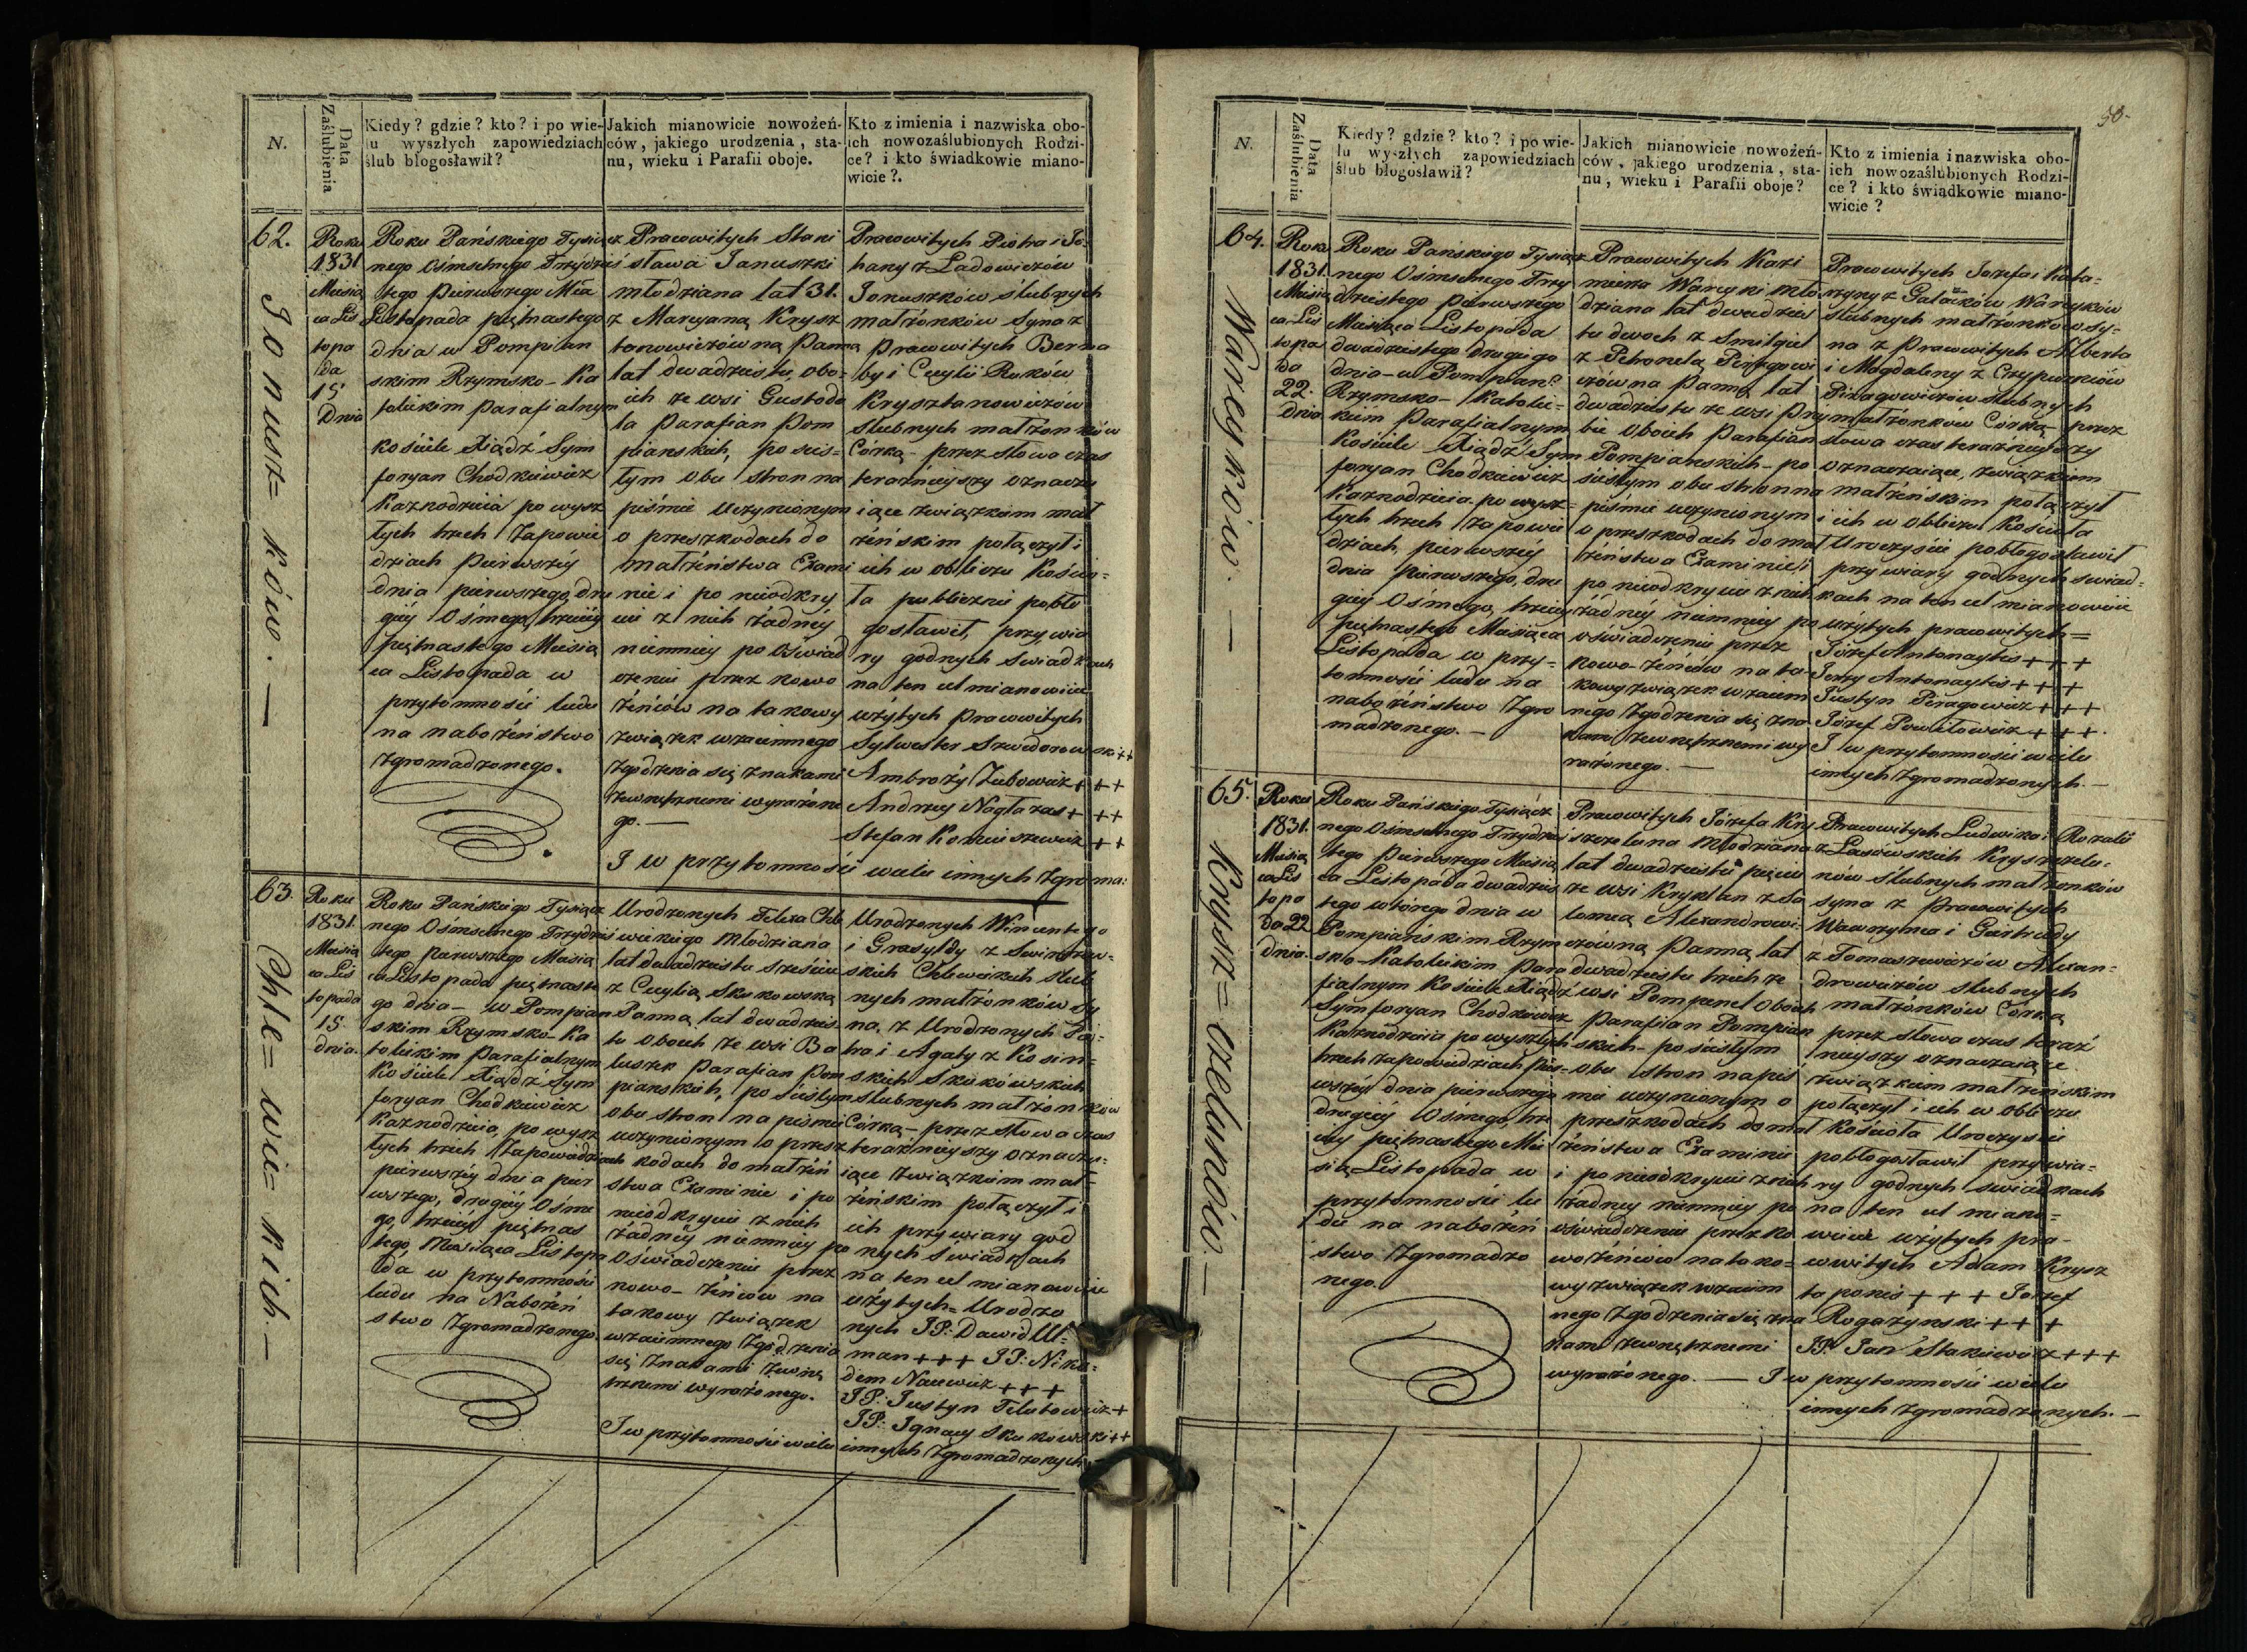 N.
Data Zaślubienia
Kiedy? gdzie? kto? i po wie-
lu wyszłych zapowiedziach
ślub błogosławił?
Jakich mianowicie nowożeń-
ców, jakiego urodzenia, sta-
nu, wieku i Parafii oboje.
Kto z imienia i nazwiska obo-
ich nowozaślubionych Rodzi-
ce? i kto świadkowie miano-
wicie?.
62.
Janusz= ków. —
Roku
1831
Miesią
ca Lis
topa
da
15
Dnia
Roku Pańskiego Tysiącz
nego Ośmsetnego Trzydzies
tego Pierwszego Mca
Listopada piętnastego
dnia w Pompian
skim Rzymsko-Ka
tolickim Parafialnym
Kościele Xiądz Sym
foryan Chodkiewicz
Kaznodzieia po wysz
łych trzech Zapowie
dziach Pierwszéy
dnia pierwszego, dru
giéy Ośmego, trzeciéy
piętnastego Miesią
ca Listopada w
przytomności ludu
na nabożeństwo
zgromadzonego.
Pracowitych Stani
sława Januszki
młodziana lat 31.
z Maryanną Krysz
tanowiczówną Panną
lat dwadziestu, obo-
ich ze wsi Gustodo
la Parafian Pom
pianskich, po ścis=
łym obu stron na
piśmie uczynionym
o przeszkodach do
małżeństwa Exami
nie i po nieodkry
ciu z nich żadnéy
niemniéy po oświad
czeniu przez nowo
żeńców na takowy
związek wzaiemnego
zgodzenia się znakami
zewnętrznemi wyrażone
go. —
Pracowitych Piotra i Jo-
hany z Ladowiczów
Januszków ślubnych
małżonków Syna z
Pracowitych Berna
by i Cecylii Ruków
Krysztanowiczów
Slubnych małżonków
Córką - przez słowa czas
teraźnieyszy oznacza
iące związkiem mał
żeńskim połączył i
ich w obliczu Kościo-
ła publicznie pobło
gosławił, przy wia
ry godnych świadkach
na ten cel mianowicie
użytych Pracowitych
Sylwester Szwedorowski++
Ambroży Zubowicz+++
Andrzey Nagłazas+++
Stefan Komiszewicz++
I w przytomności wielu innych zgroma:
63.
Chle= wic= kich. —
Roku
1831
Miesią
ca Lis
topada
15.
dnia.
Roku Pańskiego Tysiącz
nego Ośmsetnego Trzydzies
tego pierwszego Miesią
ca Listopada piętnaste
go dnia - w Pompian
skim Rzymsko-Ka
tolickim Parafialnym
Kościele Xiądz Sym
foryan Chodkiewicz
Kaznodzieia, po wysz
łych trzech Zapowiedziach
pierwszéy dnia pier
wszego, drugiéy Ośme
go, trzeciéy piętnas
tego, Miesiąca Listopa
da w przytomności
ludu na Nabożeń
stwo zgromadzonego.
Urodzonych Felixa Chle
wickiego Młodziana
lat dwadziestu sześciu
z Cecylią Skukowską
Panną lat dwadzies
tu oboich ze wsi Ba
luszek Parafian Pom
pianskich, po ścisłym
obu stron na piśmie
uczynionym o przesz
kodach do małżeń
stwa Examinie i po
nieodkryciu z nich
żadnéy niemniéy po
oświadczeniu przez
nowo-żeńców na
takowy związek
wzaiemnego zgodzenia
się znakami zewnę
trznemi wyrażonego.
Urodzonych Wincentego
i Grasyldy z
skich Chlewickich ślub
nych małżonków Sy
na, z Urodzonych
i Agaty z Kosin=
skich Skukówskich
slubnych małżonków
Córką - przez słowa czas
teraznieyszy oznacza=
iące związkiem mał=
żeńskim połączył i
ich przy wiary god
nych świadkach
na ten cel mianowicie
użytych= Urodzo
nych JP: Dawid Ul=
man+++ JP: Niko=
dem Nacewicz+++
JP: Justyn Filutowicz+
JP: Ignacy Skukowski++
I w przytomności wielu innych zgromadzonych.
58.
N.
Data Zaślubienia
Kiedy? gdzie? kto? i po wie-
lu wyszłych zapowiedziach
ślub błogosławił?
Jakich mianowicie nowożeń-
ców, jakiego urodzenia, sta-
nu, wieku i Parafii oboje?
Kto z imienia i nazwiska obo-
ich nowozaślubionych Rodzi-
ce? i kto świadkowie miano-
wicie?
64.
Warcyków. —
Roku
1831.
Miesią
ca Lis
topa
da
22.
dnia
Roku Pańskiego Tysiącz
nego Ośmsetnego Trzy
dziestego pierwszego
Miesiąca Listopada
dwudziestego drugiego
dnia - w Pompian:
Rzymsko-Katolic-
kim Parafialnym
Kościele Xiądz Sym
foryan Chodkiewicz
Kaznodzieia po wysz=
łych trzech zapowie
dziach, pierwszéy
dnia pierwszego, dru
giéy Ośmego, trzeciéy
piętnastego Miesiąca
Listopada w przy=
tomności ludu na
nabożeństwo zgro
madzonego. —
Pracowitych Kazi
mierza Warcyki Mło
dziana lat dwadzies
tu dwoch z Smilgiel
z Petronelą Pieragowi
czówna Panną lat
dwadziestu ze wsi Przy
bu Oboich Parafian
Pompianskich - po
ścisłym obu stron na
piśmie uczynionym
o przeszkodach do mał
żeństwa Examinie i
po nieodkryciu z nich
żadnéy niemniéy po
oświadczeniu przez
nowo-żeńców na ta
kowy związek wzaiem
nego zgodzenia się zna
kami zewnętrznemi wy
rażonego. —
Pracowitych Jozefa i Kata-
rzyny z Galaczków Warcyków
slubnych małżonków sy-
na z Pracowitych Alberta
i Magdaleny z
Pieragowiczów slubnych
małżonków Córką - przez
słowa czas teraźnieyszy
oznaczaiące, związkiem
małżeńskim połączył
i ich w obliczu Kościoła
Uroczyście pobłogosławił
przy wiary godnych świad=
kach na ten cel mianowicie
użytych pracowitych=
Józef Antonaytis+++
Jerzy Antonaytis+++
Justyn Pieragowicz+++
Józef Powiłowicz+++.
I w przytomności wielu
innych zgromadzonych. —
65.
Krysz= czelunów. —
Roku
1831.
Miesią
ca Lis
topa
da 22
dnia.
Roku Pańskiego Tysiącz
nego Ośmsetnego Trzydzies
tego Pierwszego Miesią
ca Listopada dwadzies
tego wtórego dnia w
Pompiańskim Rzym
sko-Katolickim Para
fialnym Kościele Xiądz
Symforyan Chodkiewicz
Kaznodzieia po wyszłych
trzech zapowiedziach Pier=
wszéy dnia pierwszego
drugiéy Osmego, trze
ciéy piętnastego Mie
sią Listopada w
przytomności lu
du na nabożeń
stwo zgromadzo
nego.
Pracowitych Józefa Kry
szczeluna Młodziana
lat dwadziestu pięciu
ze wsi Krykłan z Sa
lomeą Alexandrowi-
czówną Panną lat
dwadziestu trzech ze
wsi Pompenel Oboich
Parafiian Pompian
skich - po ścisłym
obu stron napiś
mie uczynionym o
przeszkodach do mał
żeństwa Examinie
i po nieodkryciu z nich
żadnéy niemniéy po
oświadczeniu przez no
wo żeńców na tako=
wy związek wzaiem
nego zgodzenia się zna
kami zewnętrznemi
wyrażonego. —
Pracowitych Ludwika i Rozalii
z Lasowskich Kryszczelu-
nów Slubnych małżonków
syna z Pracowitych
Wawrzynca i Gertrudy
z Tomaszewiczów Alexan=
drowiczów slubnych
małżonków Córką
przez słowa czas teraź
nieyszy oznaczaiące
związkiem małżeńskim
połączył i ich w obliczu
Kościoła Uroczyście
pobłogosławił przy wia=
ry godnych świadkach
na ten cel miano=
wicie użytych pra-
cowitych Adam Krysz
toponis+++ Jozef
Rogożynski+++
JP. Jan Stakiewicz+++
I w przytomności wielu
innych zgromadzonych. —